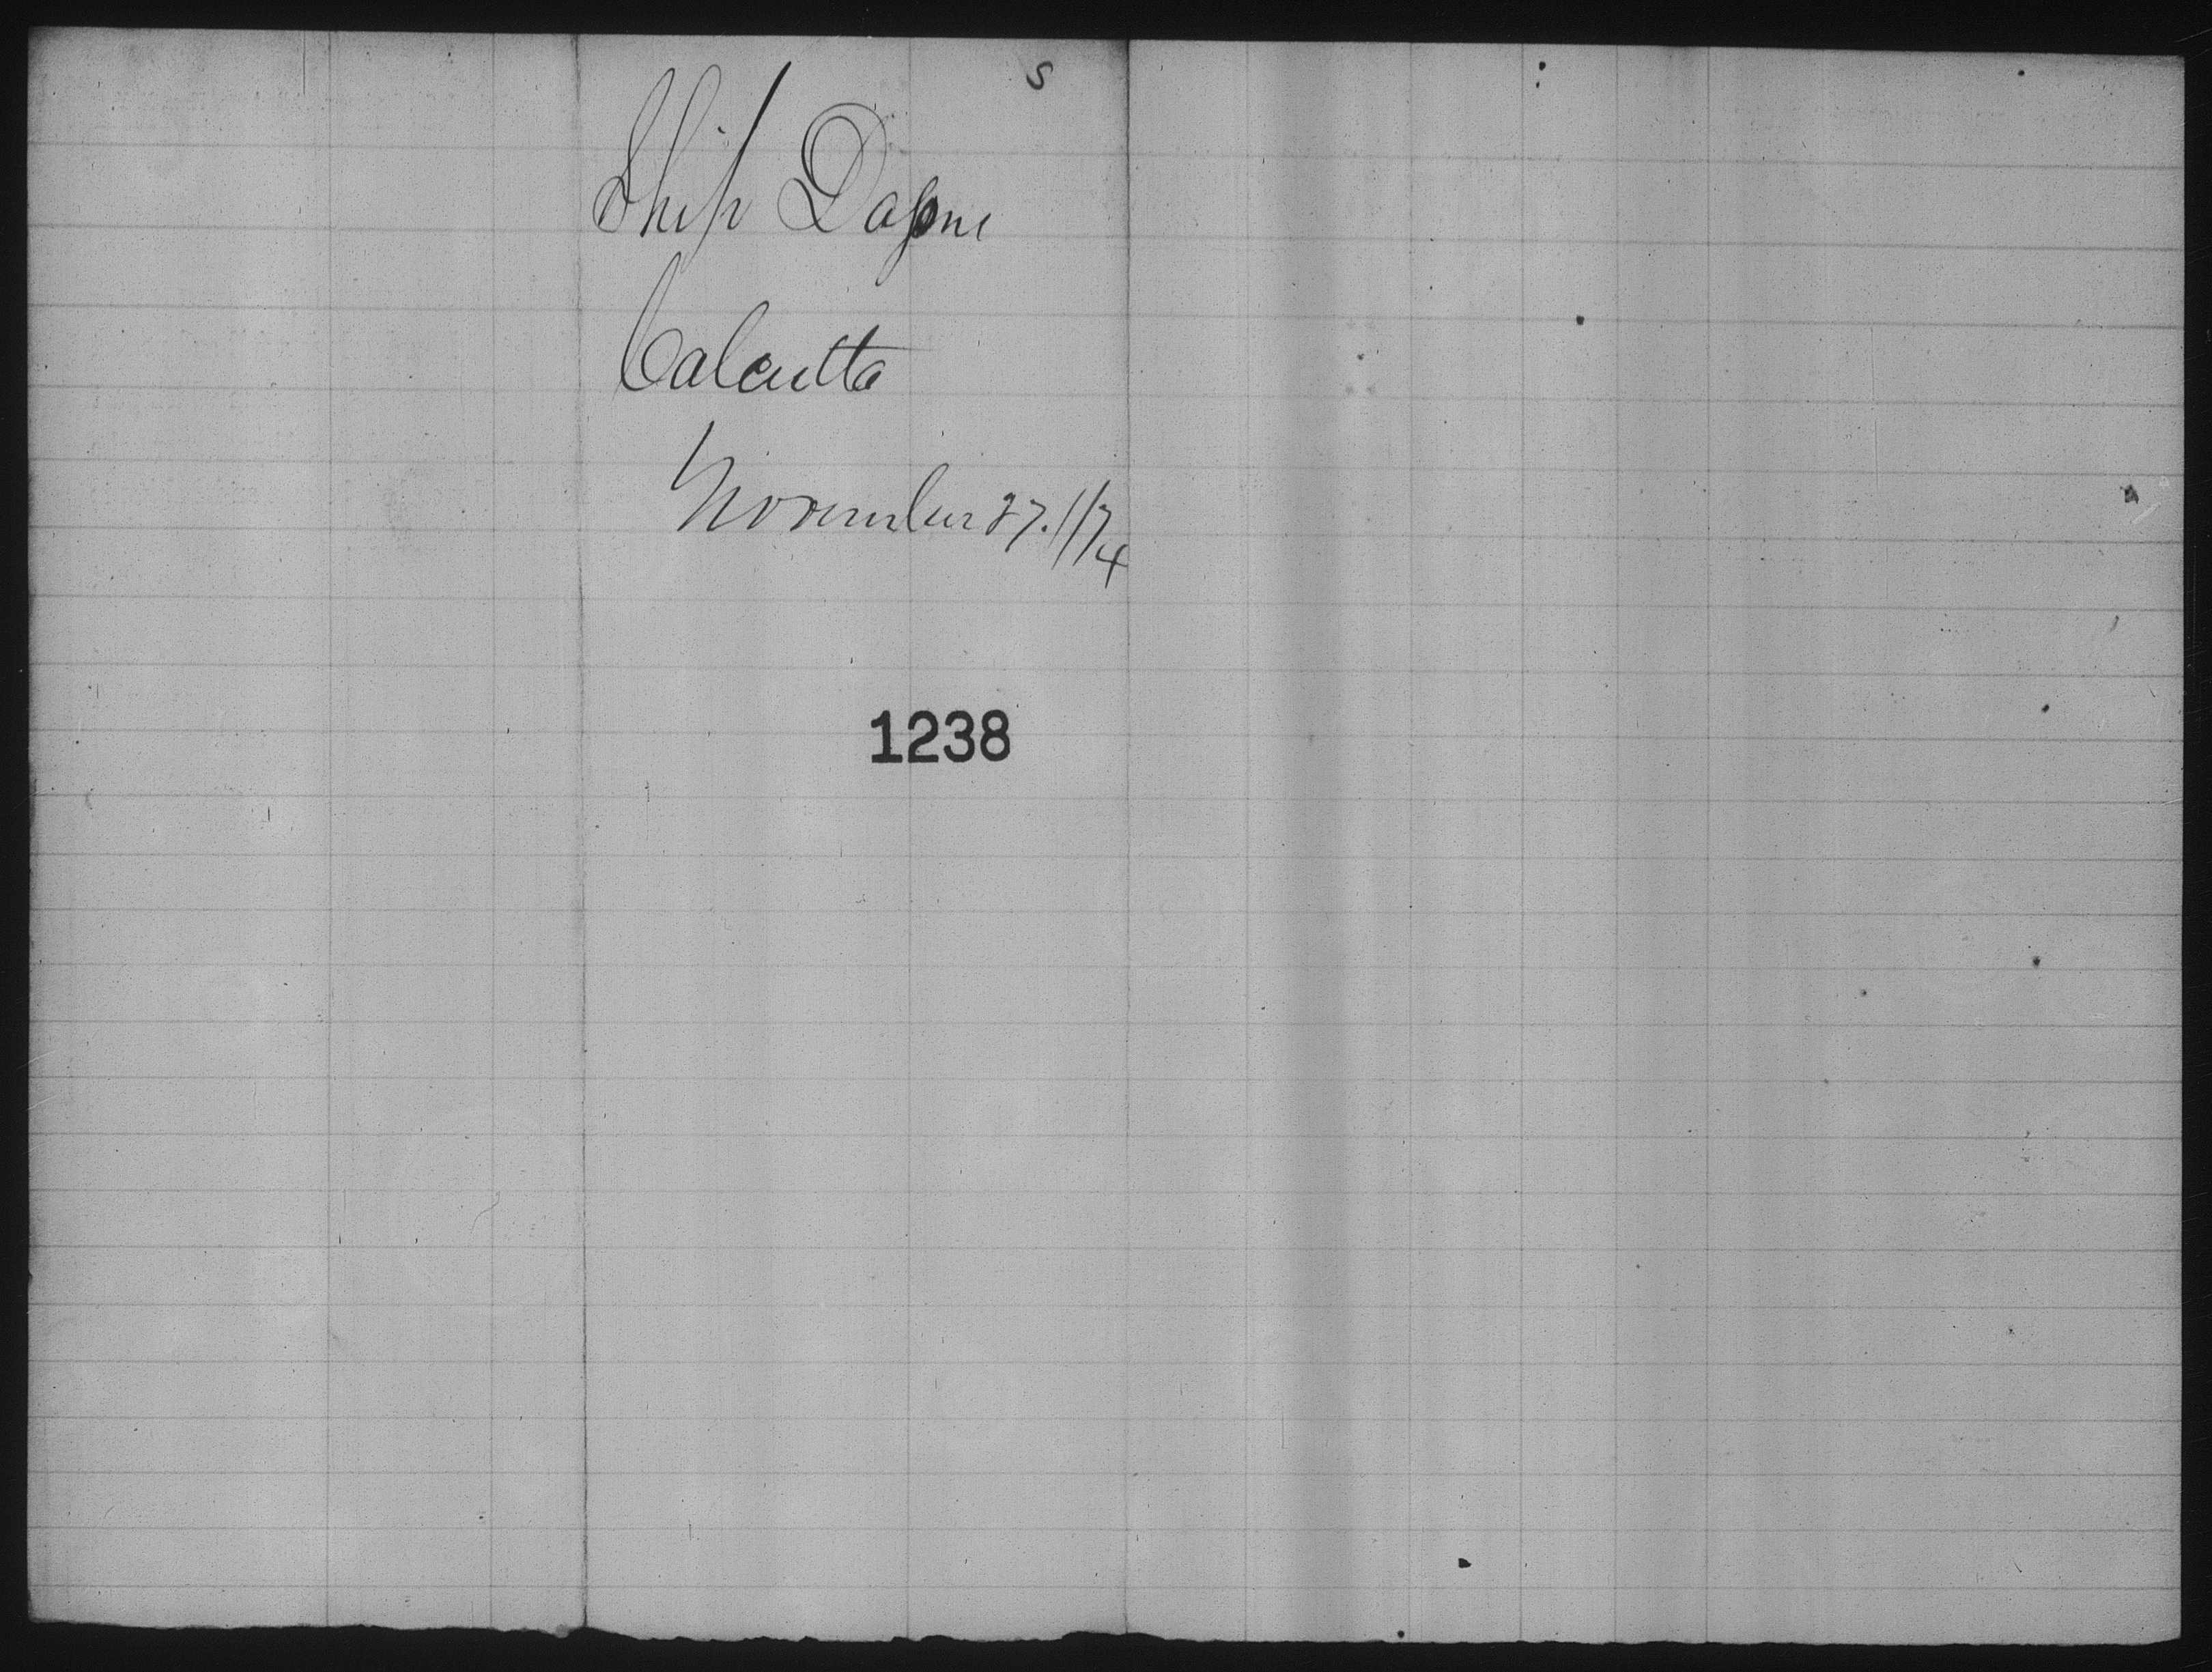 s
Ship Dafine
Calcutta
November 27. 1/74
1238